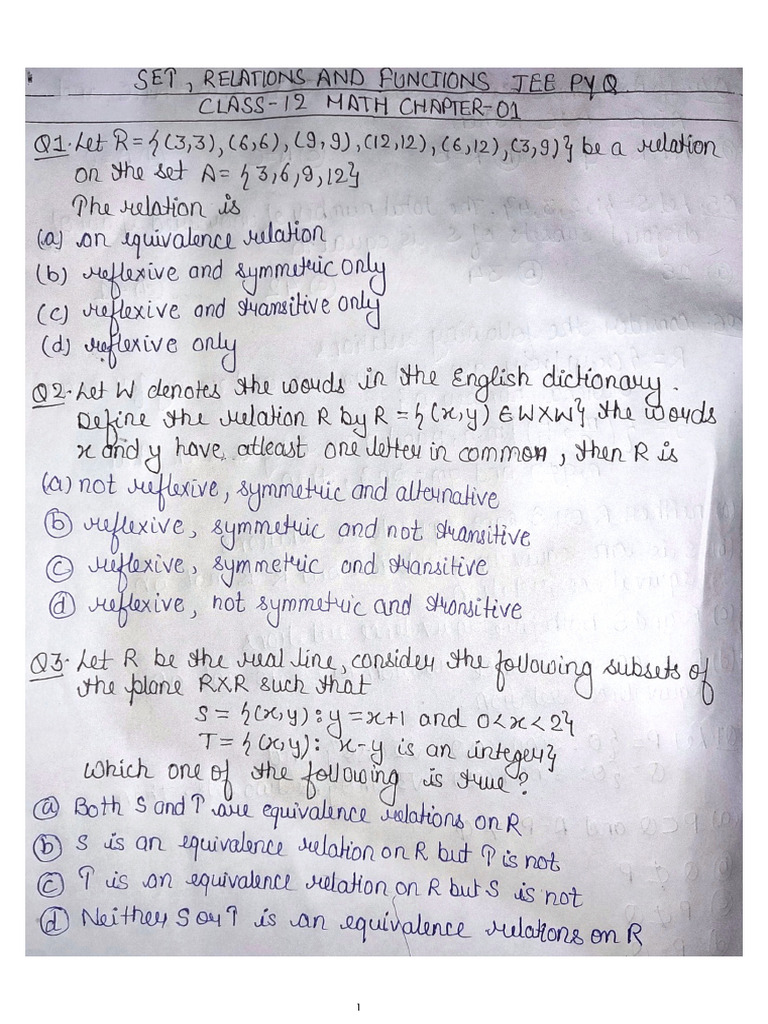 SET, RELATIONS AND FUNCTIONS JEE PYQ
CLASS-12 MATH CHAPTER-01
Q1. Let R = {(3,3), (6,6), (9,9), (12,12), (6,12), (3,9)} be a relation
on the set A = {3,6,9,12}
The relation is
(a) an equivalence relation
(b) reflexive and symmetric only
(c) reflexive and transitive only
(d) reflexive only
Q2. Let W denotes the words in the English dictionary.
Define the relation R by R = {(x,y) ∈ W×W} the words
x and y have atleast one letter in common, then R is
(a) not reflexive, symmetric and alternative
(b) reflexive, symmetric and not transitive
(c) reflexive, symmetric and transitive
(d) reflexive, not symmetric and transitive
Q3. Let R be the real line, consider the following subsets of
the plane R×R such that
S = {(x,y) : y = x+1 and 0<x<2}
T = {(x,y) : x-y is an integer}
Which one of the following is true?
(a) Both S and T are equivalence relations on R
(b) S is an equivalence relation on R but T is not
(c) T is an equivalence relation on R but S is not
(d) Neither S or T is an equivalence relations on R
1